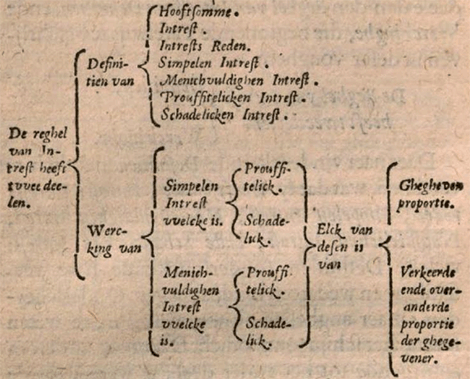 De reghel
van In-
trest heeft
tvvee dee-
len.
Defini-
tien van
Hooftsomme.
Intrest.
Intrests Reden.
Simpelen Intrest.
Menichvuldighen Intrest.
Prouffitelicken Intrest.
Schadelicken Intrest.
Werc-
king van
Simpelen
Intrest
vvelcke is.
Prouffi-
telick.
Schade-
lick.
Menich-
vuldighen
Intrest
vvelcke
is.
Prouffi-
telick.
Schade-
lick.
Elck van
desen is
van
Ghegheven
proportie.
Verkeerde
ende over-
anderde
proportie
der ghege-
vener.